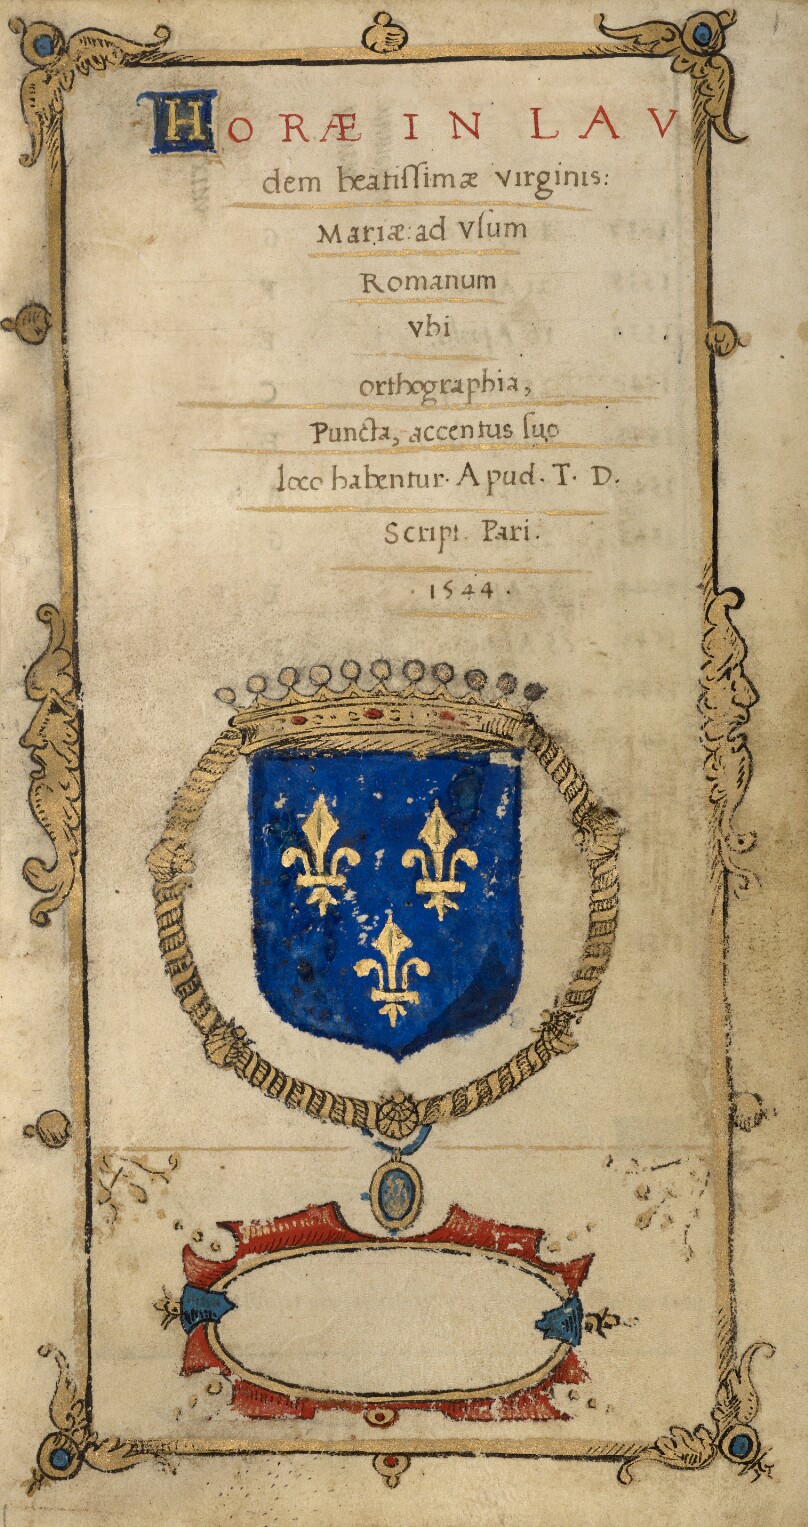 HORÆ IN LAV
dem beatiſſimæ virginis:
Mariæ: ad vſum
Romanum
vbi
orthographia,
Puncta, accentus ſuo
loco habentur. Apud. T. D.
Script. Pari.
· 1544 ·